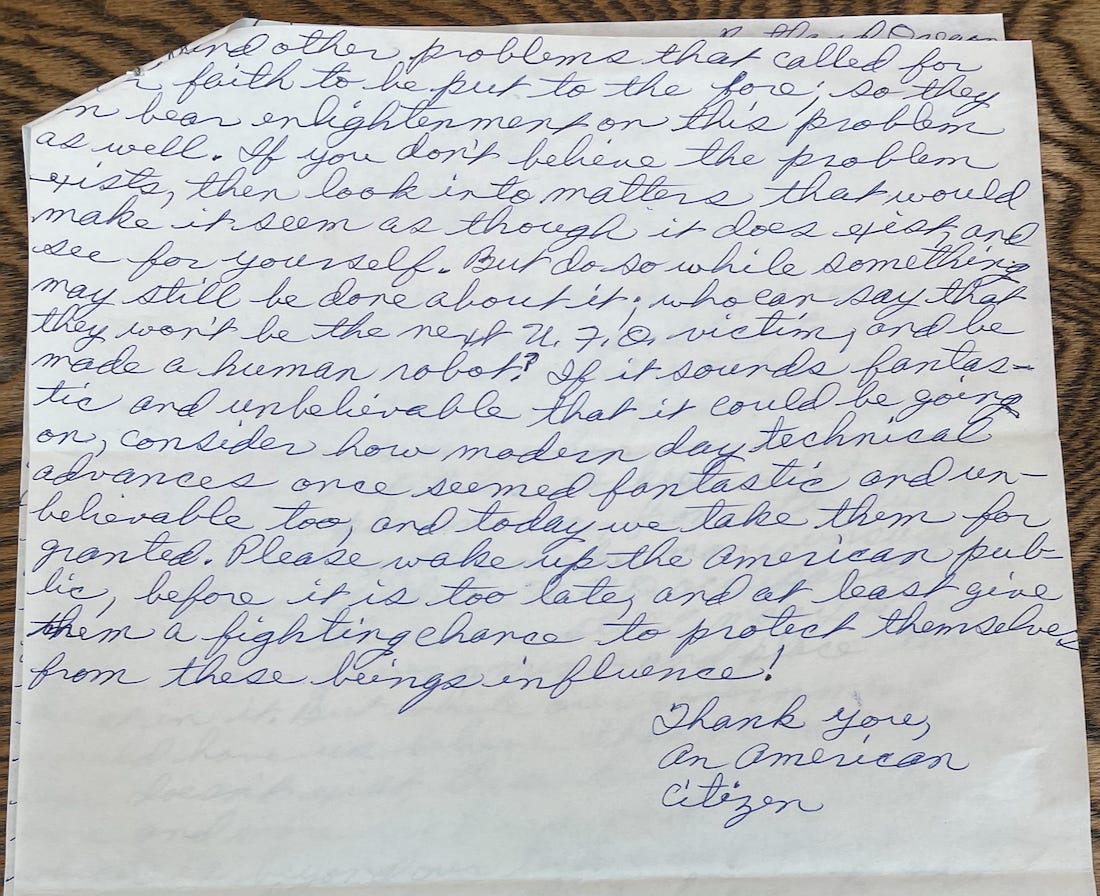 Portland Oregon
and other problems that called for
faith to be put to the fore; so they
n bear enlightenment on this problem
as well. If you don't believe the problem
exists, then look into matters that would
make it seem as though it does exist, and
see for yourself. But do so while something
may still be done about it; who can say that
they won't be the next U.F.O. victim, and be
made a human robot? If it sounds fantas-
tic and unbelievable that it could be going
on, consider how modern day technical
advances once seemed fantastic and un-
believable too, and today we take them for
granted. Please wake up the American pub-
lic, before it is too late, and at least give
them a fighting chance to protect themselves
from these beings influence!
Thank you,
An American
Citizen